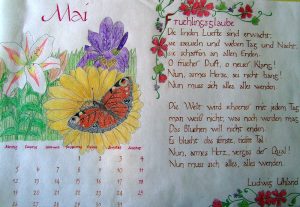 Mai
Fruehlingsglaube
Die linden Luefte sind erwacht,
sie saeuseln und weben Tag und Nacht,
sie schaffen an allen Enden.
O frischer Duft, o neuer Klang!
Nun, armes Herze, sei nicht bang!
Nun muss sich alles, alles wenden.
Die Welt wird schoener mit jedem Tag,
man weiß nicht, was noch werden mag,
Das Bluehen will nicht enden.
Es blueht das fernste, tiefste Tal
Nun, armes Herz, vergiss der Qual!
Nun muss sich alles, alles wenden.
Ludwig Uhland
1 2 3 4